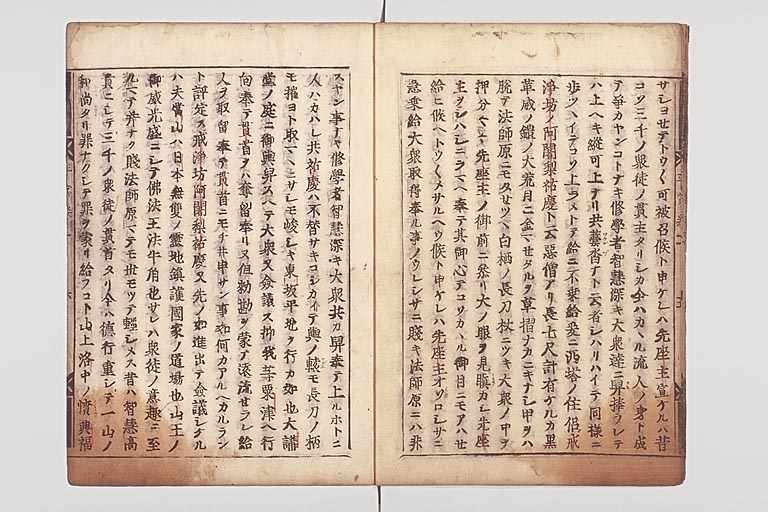 サシヨセテトウ〱可被召候ト申ケレハ先座主宣ケルハ昔
コソ三千ノ衆徒ノ貫主タリシカ今ハカヽル流人ノ身ト成
テ爭カヤンコトナキ修學者智慧深キ大衆達ニ舁捧ラレテ
ハ上ヘキ縱可上テリ共藁沓アト云者シハリハイテ同様ニ
歩ツヽイテコソ上ラストテ給ニ不乗給爰ニ西塔ノ住侶戒
淨坊ノ阿闍梨祐慶ト云惡僧アリ長七尺計有ケルカ黒
革威ノ鎧ノ大荒目ニ金マセタルヲ草摺ナカニキナシ甲ヲハ
脱テ法師原ニモタセツヽ白柄ノ長刀杖ニツキ大衆ノ中ヲ
押分〱先座主ノ御前ニ參リ大ノ眼ヲ見瞋カシ先座
主ヲシハシニラマヘ奉テ其御心テコソカヽル御目ニモアハせ
給ヒ候ヘトウ〱メサルヘウ候ト申ケレハ先座主オソロシサニ
急乗給大衆取得奉ル事ノウレシサニ賤キ法師原ニハ非
スヤン事ナキ修學者智慧深キ大衆共カ舁奉テ上ルホトニ
人ハカハレ共祐慶ハ不替サキコシカイテ輿ノ轅モ長刀ノ柄
モ摧ヨト取マヽニサシモ峻シキ東坂平地ヲ行カ如也大講
堂ノ庭ニ御輿舁スヘテ大衆又僉議ス抑我等粟津ヘ行
向奉テ貫首ヲハ奪留奉リヌ但勅勘ヲ蒙テ流罪せラレ給
人ヲ取留奉テ貫首ニモチ井申サン事如何カアルヘカルラン
ト評定ス戒淨坊阿闍梨祐慶又先ノ如進出テ僉議シケル
ハ夫當山ハ日本無雙ノ靈地鎮護國家ノ道場也山王ノ
御威光盛ニシテ佛法王法牛角也サレハ衆徒ノ意趣ニ至
ルヘテ并ナク賤法師原マテモ世モツテ輕シメス昔ハ智慧高
貴ニシテ三千ノ衆徒ノ貫首タリ今ハ德行重シテ一山ノ
和尚タリ罪ナクシテ罪ヲ蒙リ給フコト山上洛中ノ憤興福